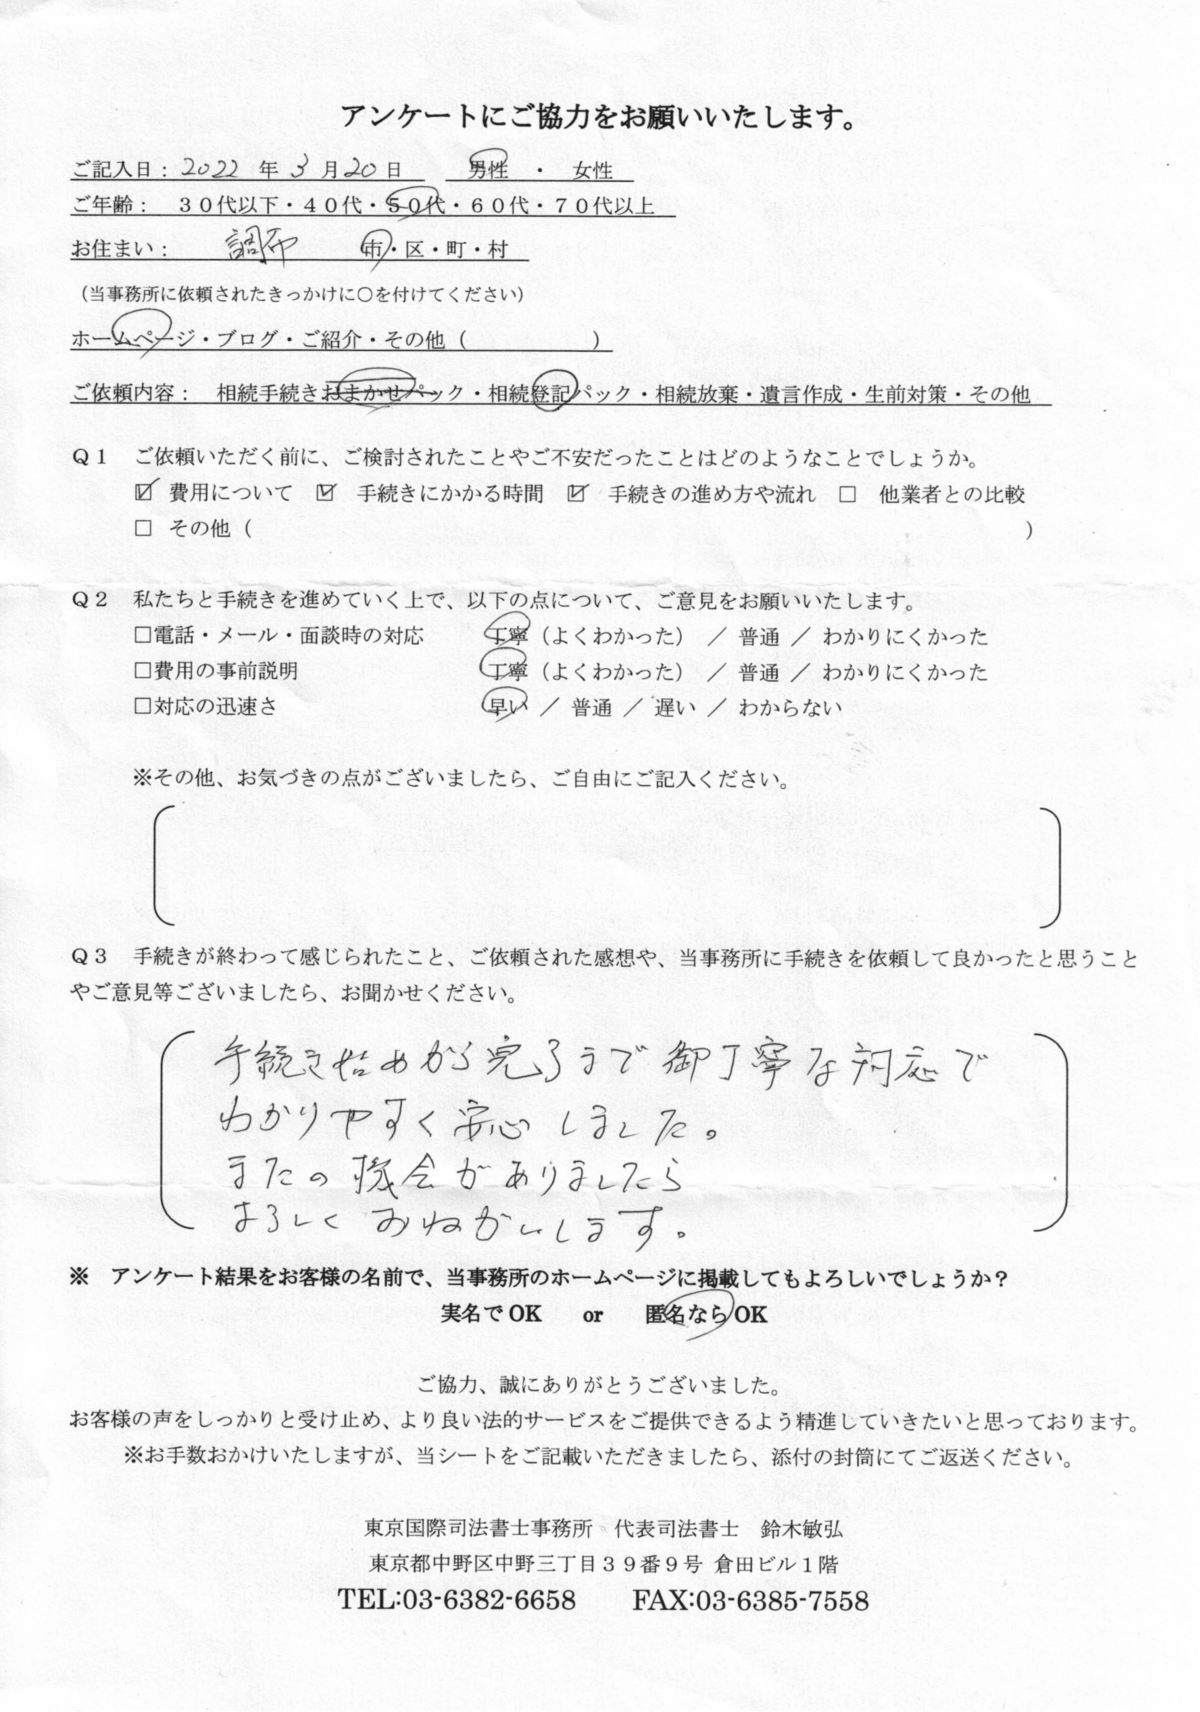 アンケートにご協力をお願いいたします。
ご記入日：2022 年 3 月20日　男性　・　女性
ご年齢：　３０代以下・４０代・５０代・６０代・７０代以上
お住まい：　調布　市・区・町・村
（当事務所に依頼されたきっかけに○を付けてください）
ホームページ・ブログ・ご紹介・その他（　　　　　　）
ご依頼内容：　相続手続きおまかせパック・相続登記パック・相続放棄・遺言作成・生前対策・その他
Ｑ１　ご依頼いただく前に、ご検討されたことやご不安だったことはどのようなことでしょうか。
☑ 費用について　☑ 手続きにかかる時間　☑ 手続きの進め方や流れ　□ 他業者との比較
□ その他（　　　　　　　　　　　　　　　　　　）
Ｑ２　私たちと手続きを進めていく上で、以下の点について、ご意見をお願いいたします。
□電話・メール・面談時の対応　丁寧（よくわかった）　／ 普通 ／ わかりにくかった
□費用の事前説明　丁寧（よくわかった）　／ 普通 ／ わかりにくかった
□対応の迅速さ　早い ／ 普通 ／ 遅い ／ わからない
※その他、お気づきの点がございましたら、ご自由にご記入ください。
Ｑ３　手続きが終わって感じられたこと、ご依頼された感想や、当事務所に手続きを依頼して良かったと思うこと
やご意見等ございましたら、お聞かせください。
手続き始めから完了まで御丁寧な対応で
わかりやすく安心しました。
またの機会がありましたら
よろしくおねがいします。
※　アンケート結果をお客様の名前で、当事務所のホームページに掲載してもよろしいでしょうか？
実名でOK　or　匿名ならOK
ご協力、誠にありがとうございました。
お客様の声をしっかりと受け止め、より良い法的サービスをご提供できるよう精進していきたいと思っております。
※お手数おかけいたしますが、当シートをご記載いただきましたら、添付の封筒にてご返送ください。
東京国際司法書士事務所　代表司法書士　鈴木敏弘
東京都中野区中野三丁目３９番９号 倉田ビル１階
TEL:03-6382-6658　FAX:03-6385-7558